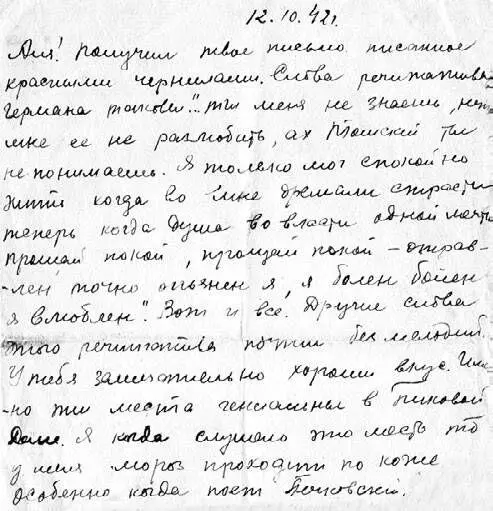 12.10.42г.
Аля! Получил твое письмо писанное
красными чернилами. Слова речитатива
Германа таковы: "Ты меня не знаешь, нет
мне ее не разлюбить, ах Томский ты
не понимаешь. Я только мог спокойно
жить когда во мне дремали страсти
теперь когда душа во власти одной мечты
прощай покой, прощай покой – отрав-
-лен точно опьянен я, я болен болен
я влюблен". Вот и все. Другие слова
этого речитатива почти без мелодий.
У тебя замечательно хороший вкус. Имен-
-но эти места гениальны в Пиковой
Даме. Я когда слушаю это место то
у меня мороз проходит по коже
особенно когда поет Печковский.